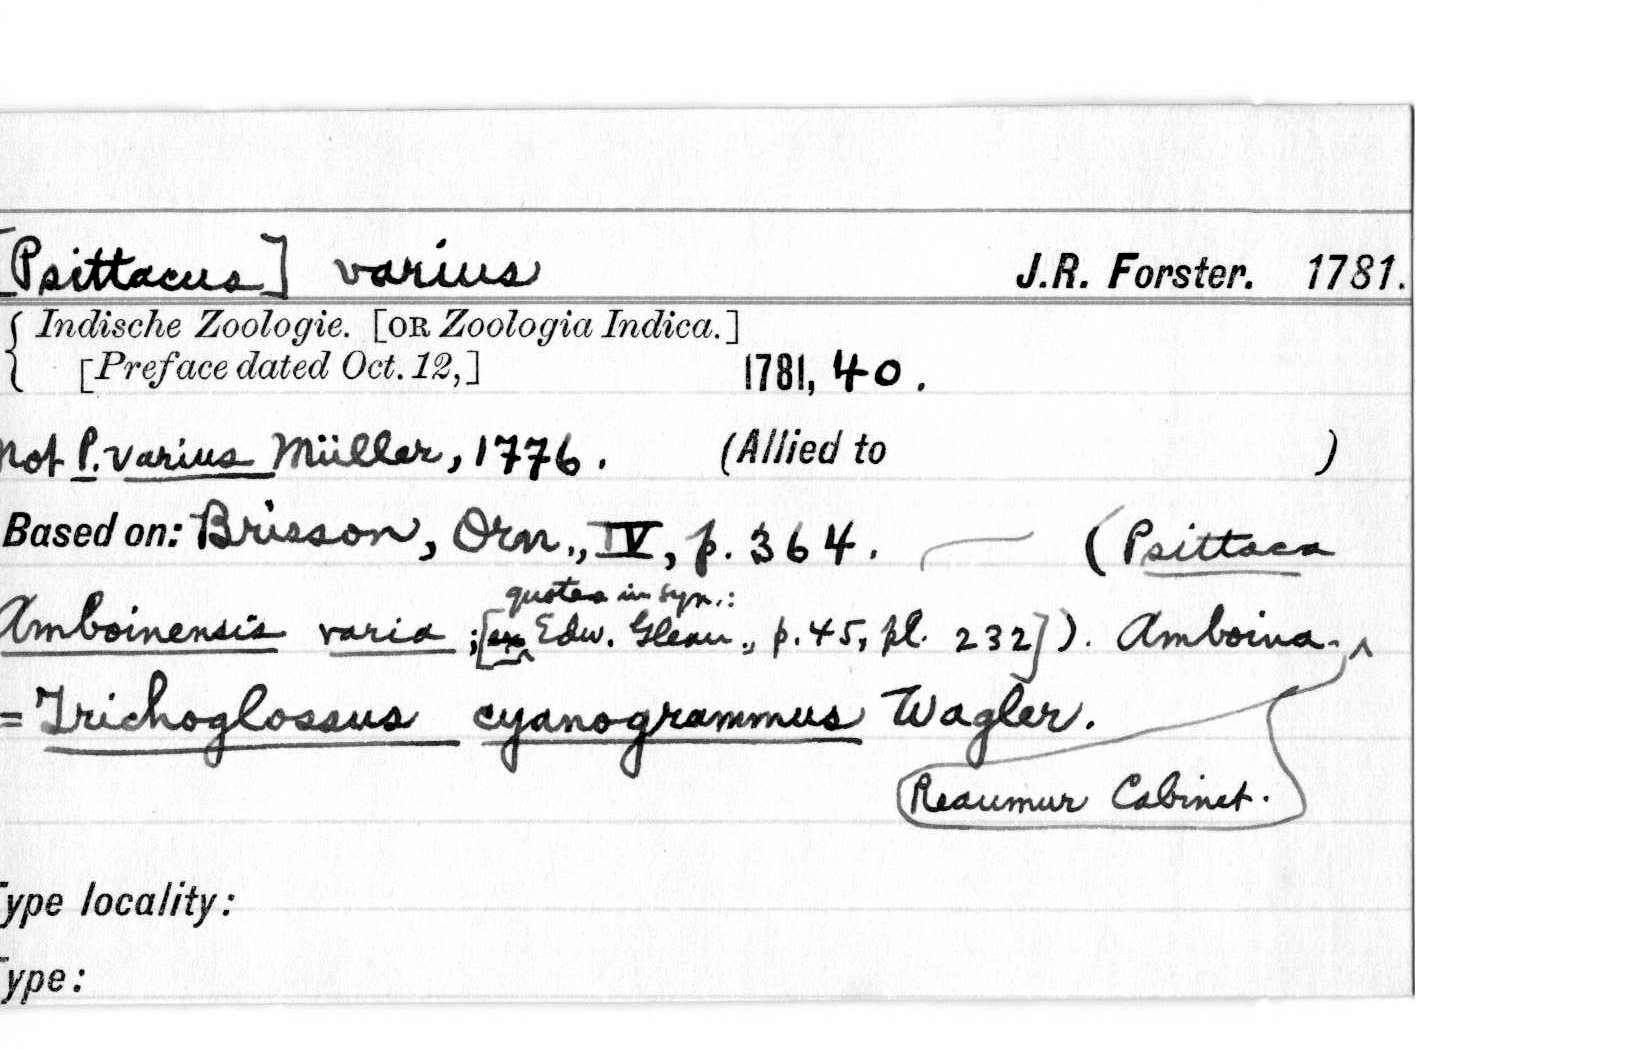 [Psittacus] varius J.R. Forster. 1781.
Indische Zoologie. [OR Zoologia Indica.]
[Preface dated Oct. 12,] 1781, 40.
not P. varius Müller, 1776. (Allied to )
Based on: Brisson, Orn., IV, p. 364. (Psittaca
quotes in syn.:
Amboinensis varia; [Edw. Glean., p. 45, pl. 232]). Amboina.
= Trichoglossus cyanogrammus Wagler.
Reaumur Cabinet.
Type locality:
Type: